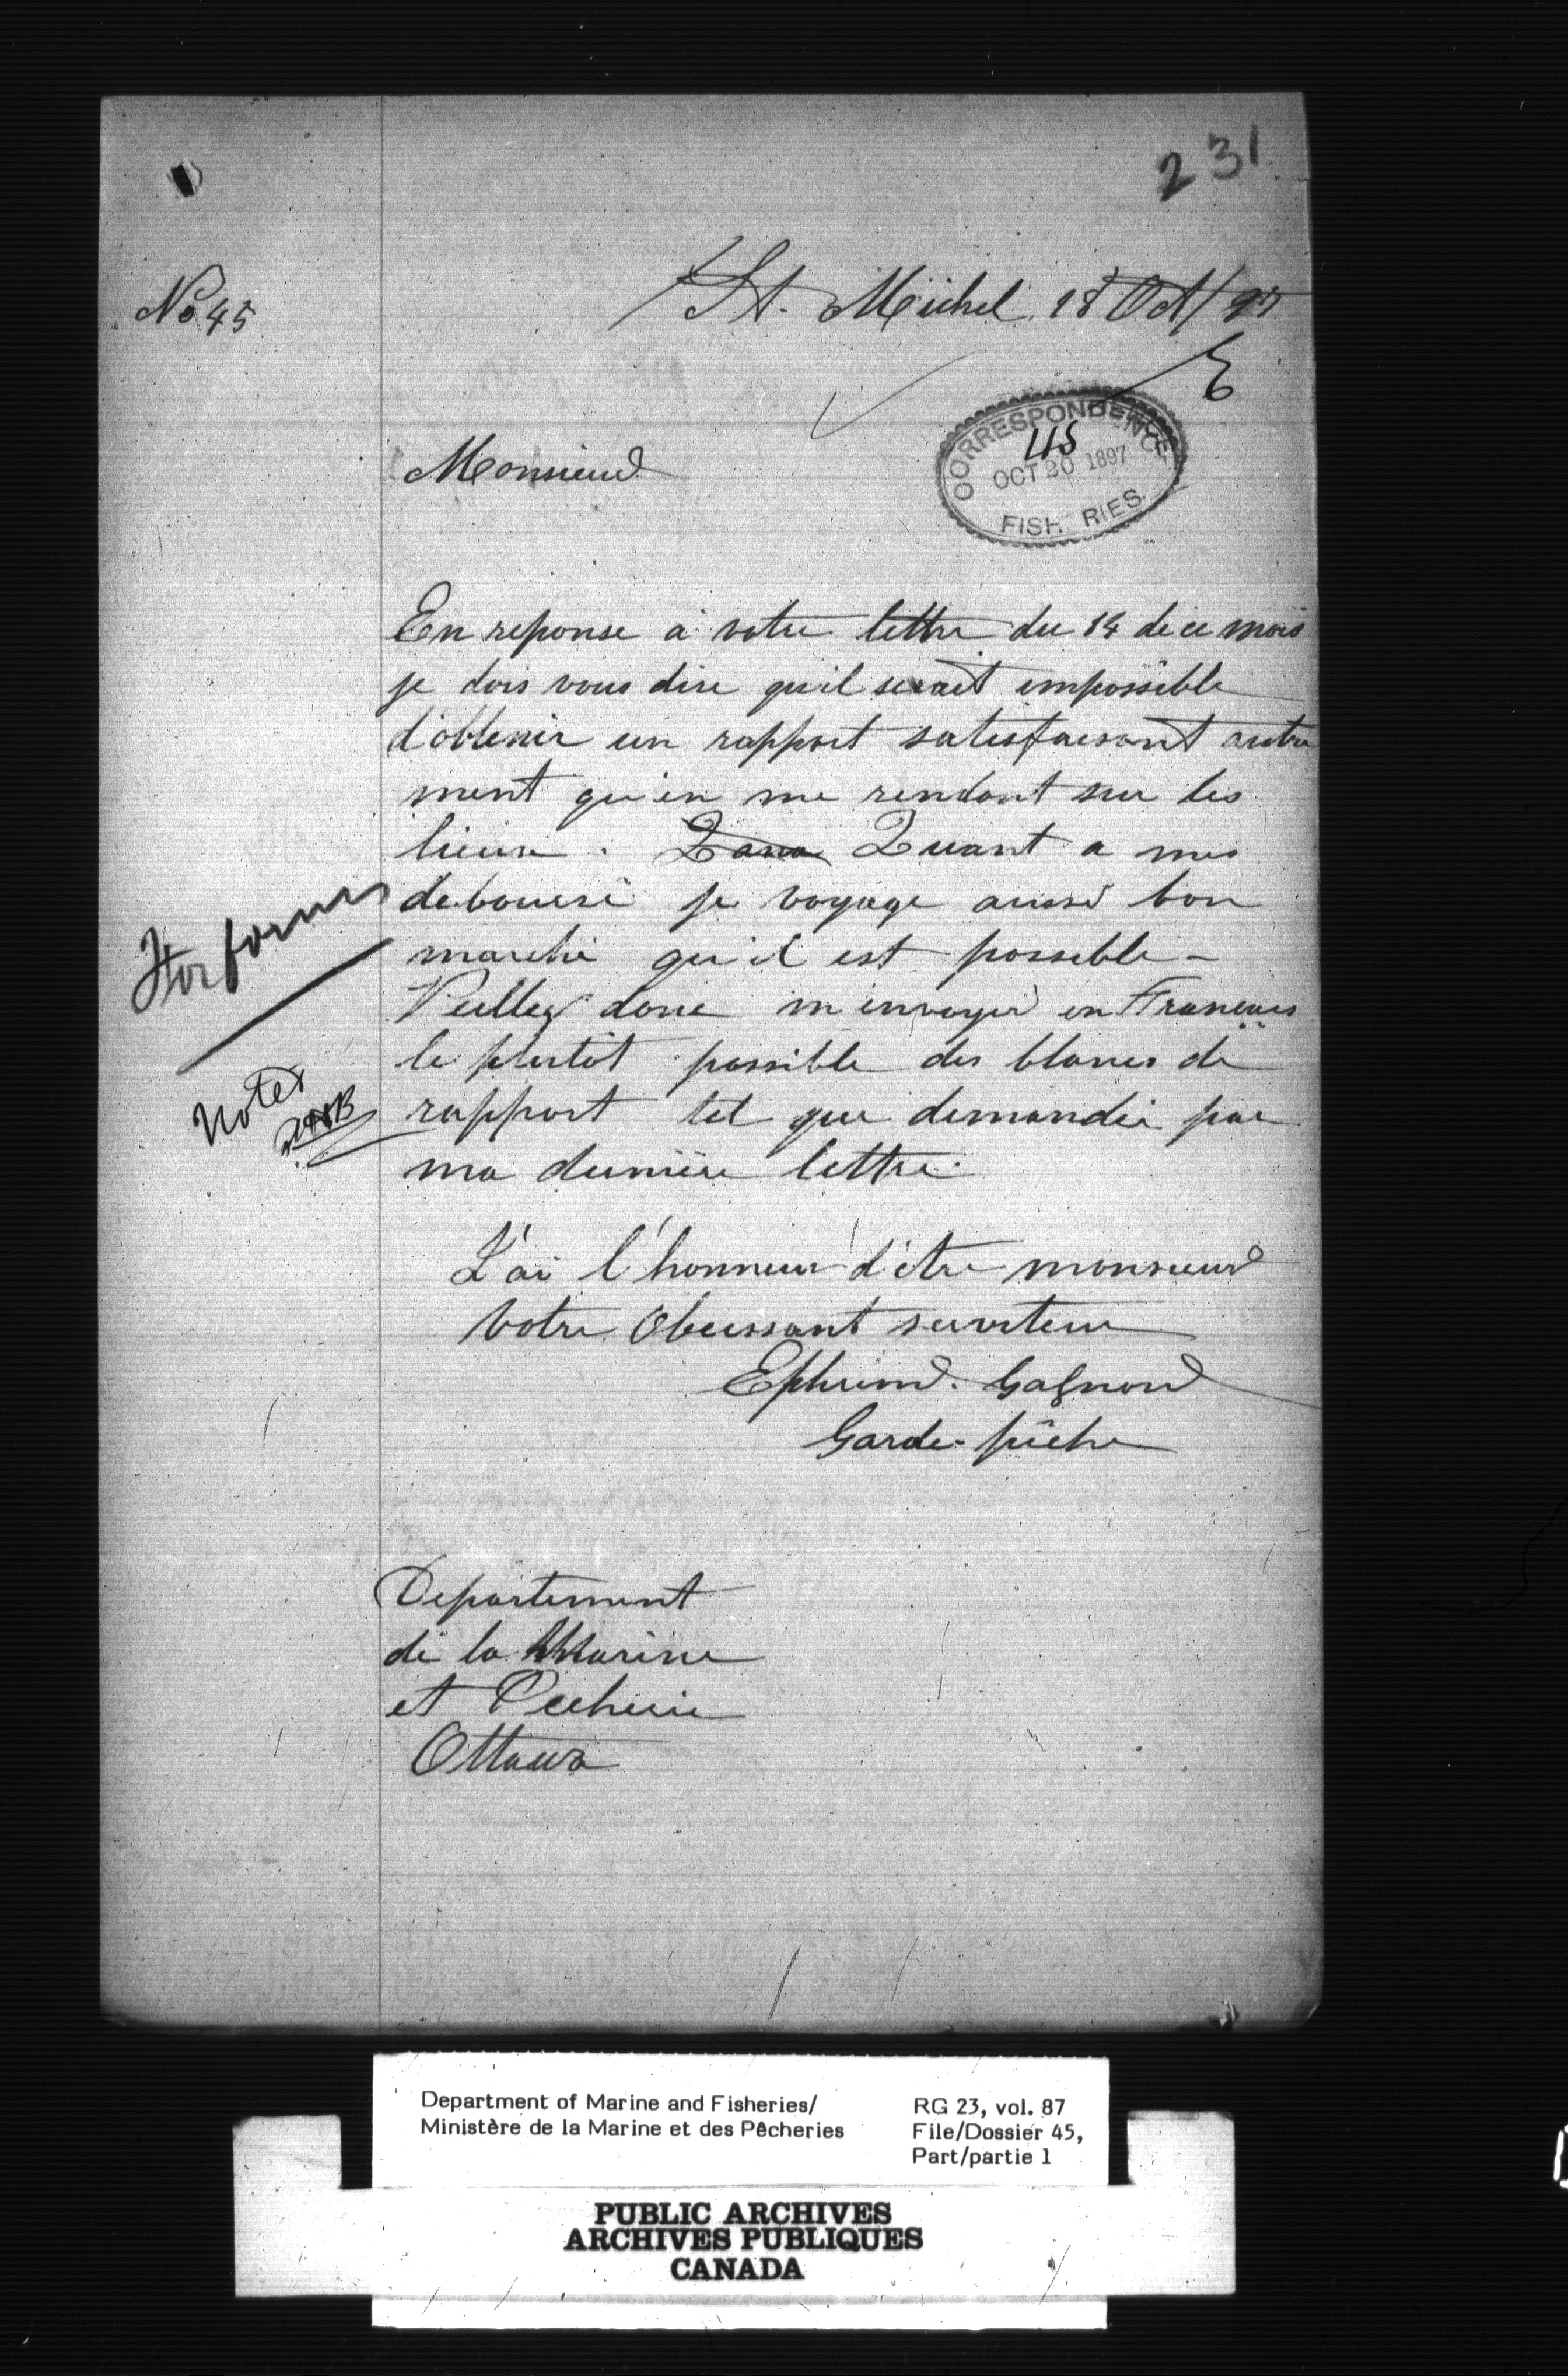 231
No 45
St. Michel 18 Oct/97
E
CORRESPONDENCE
45
OCT 20 1897
FISH RIES.
Monsieur
En reponse a votre lettre du 14 de ce mois
je dois vous dire qu'il serait impossible
d'obtenir un rapport satisfaisant autre
ment qu'en me rendant sur les
lieux. Quant a mes
deboursé je voyage aussi bon
marché qu'il est possible -
Veullez donc m'envoyer en Francais
le plutôt possible des blancs de
rapport tel que demandée par
ma dernière lettre.
for forms
Noted
J'ai l'honneur d'être monsieur
Votre Obeissant serviteur
Ephrem Gagnon
Garde-pêche
Departement
de la Marine
et Pecherie
Ottawa
Department of Marine and Fisheries/
Ministère de la Marine et des Pêcheries
RG 23, vol. 87
File/Dossier 45,
Part/partie 1
PUBLIC ARCHIVES
ARCHIVES PUBLIQUES
CANADA